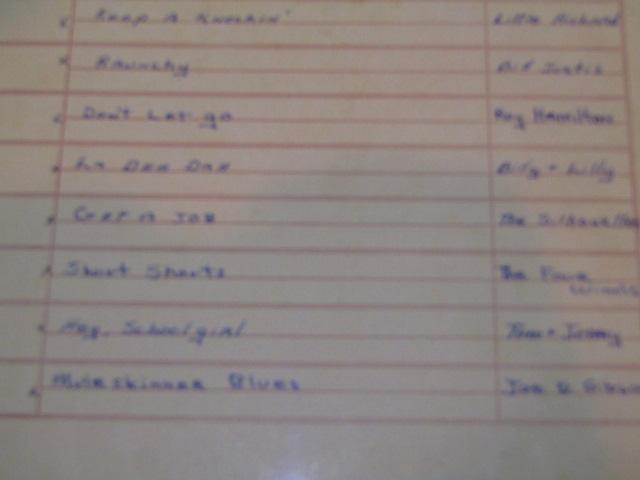 Keep A Knockin' Little Richard
Raunchy Bill Justis
Don't Let go Roy Hamilton
La Dee Dah Billy + Lilly
Get A Job The Silhouettes
Short Shorts The Four
Hey, Schoolgirl Tom + Jerry
Muleskinner Blues Joe D. Gibson